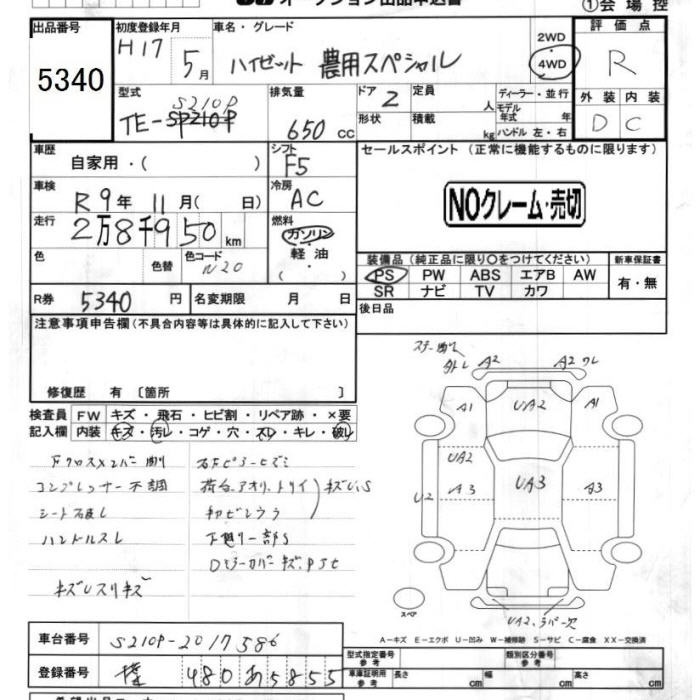 オークション出品申込書
①会場控
出品番号 初度登録年月 車名・グレード 評価点
5340 H17 5月 ハイゼット 農用スペシャル 2WD 4WD R
型式 排気量 ドア 定員 ディーラー・並行 外装 内装
TE-S210P 650 cc 2 人 モデル年式 年 D C
形状 積載 kg ハンドル 左・右
車歴 シフト セールスポイント (正常に機能するものに限ります)
自家用・( ) F5
車検 冷房
R9年 11月( 日) AC NOクレーム・売切
走行 燃料
2万8千950 km ガソリン・軽油・( )
色 色替 色コード 装備品 (純正品に限り○をつけてください) 新車保証書
N20 PS PW ABS エアB AW 有・無
SR ナビ TV カワ
R券 5340 円 名変期限 月 日 後日品
注意事項申告欄 (不具合内容等は具体的に記入して下さい)
修復歴 有 〔箇所 〕
検査員 FW キズ・飛石・ヒビ割・リペア跡・×要
記入欄 内装 キズ・汚レ・コゲ・穴・スレ・キレ・破レ
コンプレッサー不調 荷台、アオリ、トリイ キズU、S
ハンドルスレ 下廻り一部S
Dミラーカバーキズ、
キズUスリキズ
A2 A2 ワレ
A1 UA2 A1
UA2
U2 A3 UA3 A3
スペア
UA2、
A-キズ E-エクボ U-凹み W-補修跡 S-サビ C-腐食 XX-交換済
車台番号 S210P-2017586
型式指定番号 参考 類別区分番号 参考
登録番号 480 あ 5855
車庫証明用 参考 長さ cm 幅 cm 高さ cm